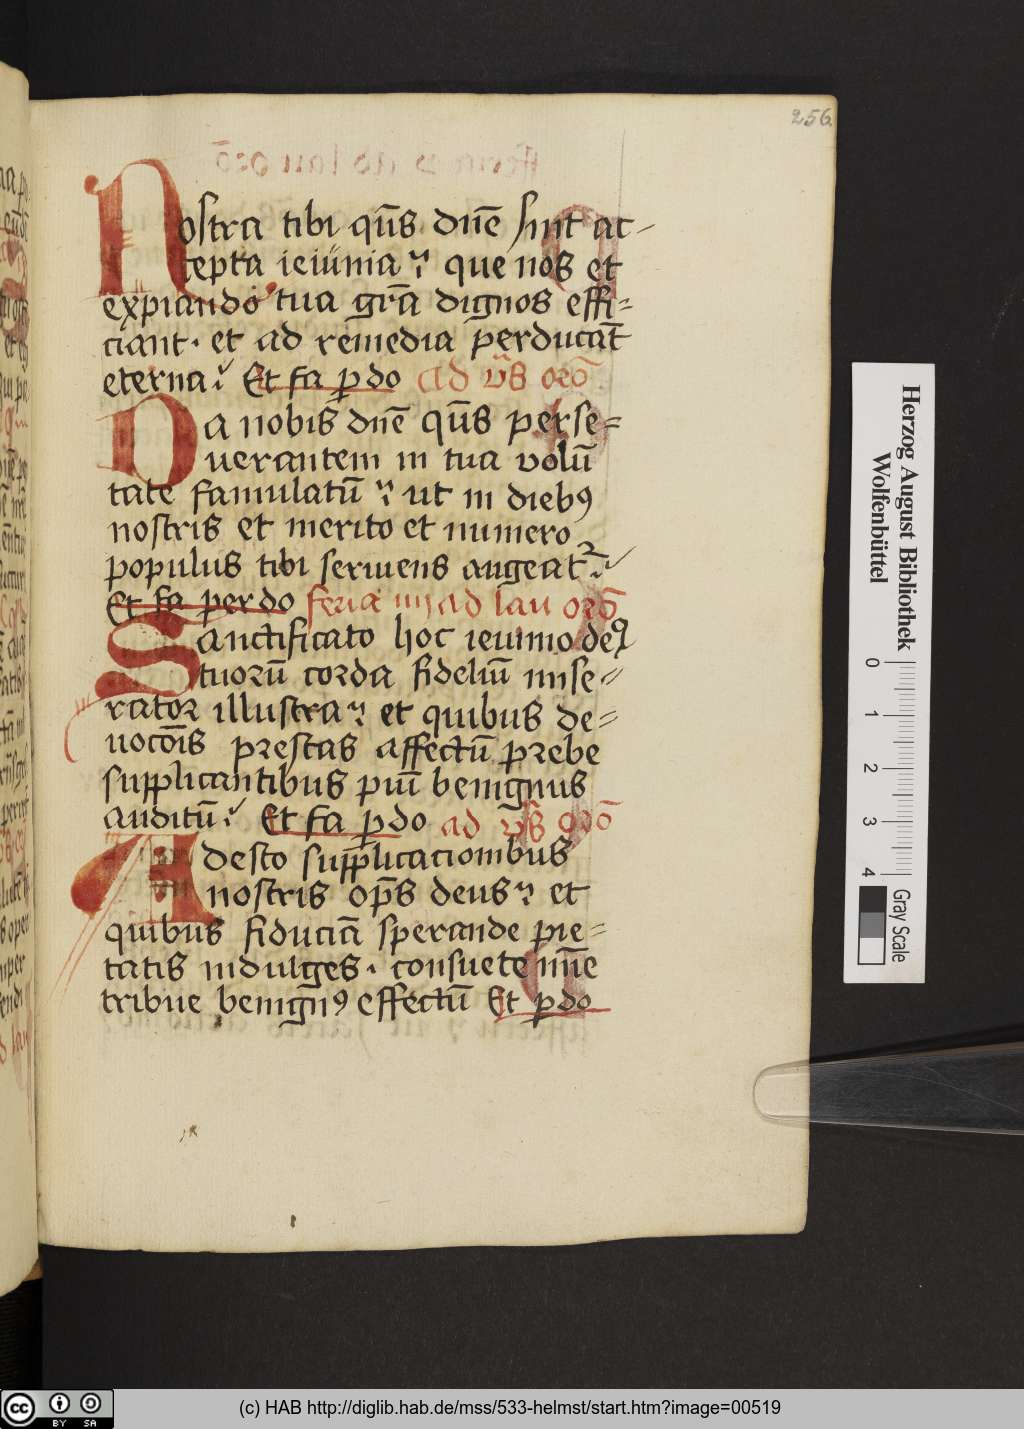 256
Nostra tibi qu̅s dn̅e sint ac-
cepta ieiunia que nos et
expiando tua gr̅a dignos effi=
ciant · et ad remedia perducat̅
eterna Et fa p̱do ad vs̅ oro̅
Da nobis dn̅e qu̅s perse=
uerantem in tua volu̅
tate famulatu̅ ut in diebꝰ
nostris et merito et numero
populus tibi seruiens augeat᷑
Et fa perdo feria iiij ad lau oro̅
Sanctificato hoc ieiunio deꝰ
tuoru̅ corda fideliu̅ mise=
rator illustra et quibus de=
uoco̅is prestas affectu̅ prebe
supplicantibus piu̅ benignus
auditu̅ Et fa p̱do ad vs̅ oro̅
Adesto supplicacionibus
nostris op̅s deus et
quibus fiducia̅ sperande pie=
tatis indulges · consuete mi̅e
tribue benign̅ꝰ effectu̅ Et p̱do
Herzog August Bibliothek
Wolfenbüttel
0 1 2 3 4
Gray Scale
cc BY SA
(c) HAB http://diglib.hab.de/mss/533-helmst/start.htm?image=00519